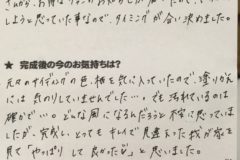 しようと思っていた事なので、タイミングが合い決めました。
★ 完成後の今のお気持ちは?
元々のサイディングの色・柄も気に入っていたので、塗りかえ
には気のりしていませんでした…。でも汚れているのは
確かだし…。どんな風になるんだろうと不安に思っていました
が、完成し、とってもキレイで見違えた我が家を
見て「やっぱりして良かったな」と思いました。